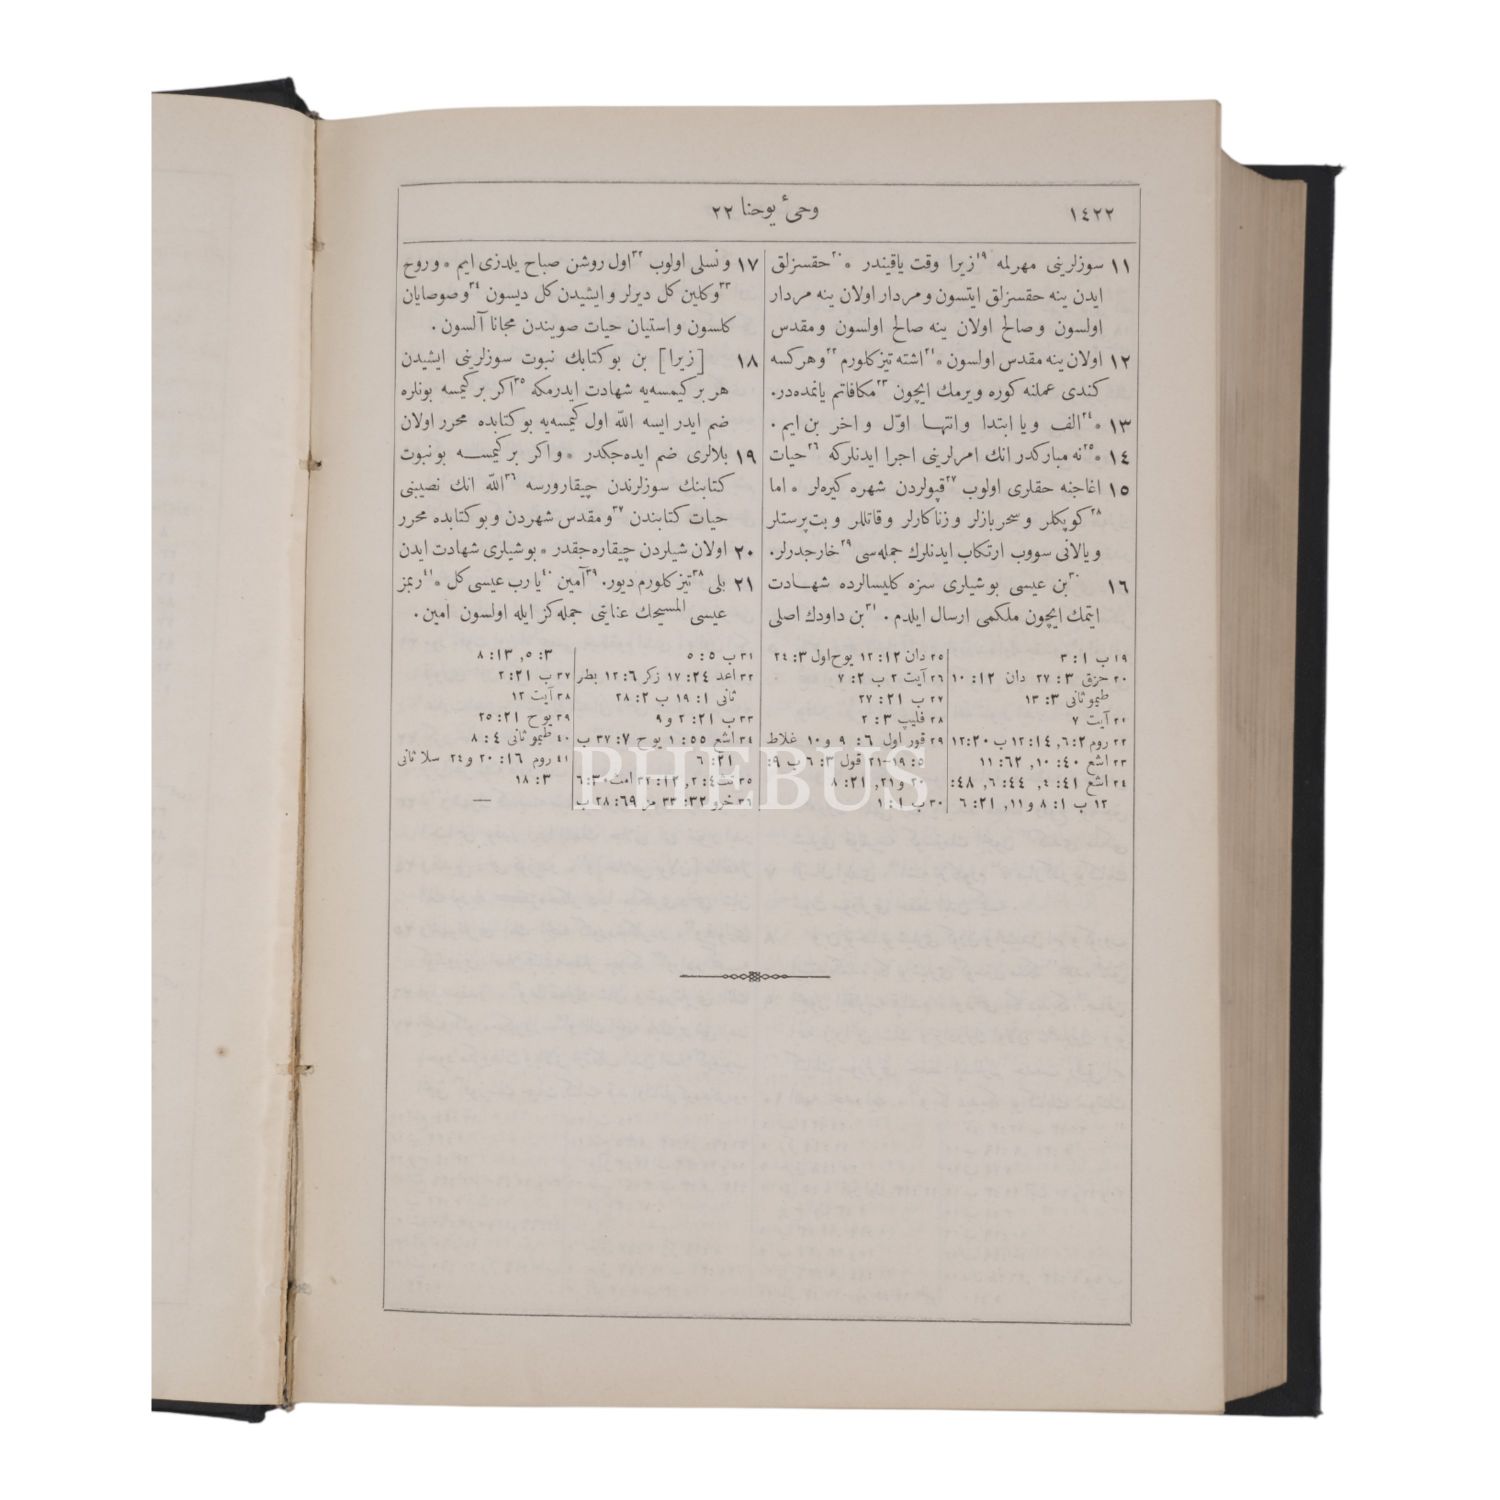 ١٤٢٢
وحیٔ یوحنا ٢٢
١١ سوزلرینی مهرلمه ١٩زیرا وقت یاقیندر * ٢٠حقسزلق
ایدن ینه حقسزلق ایتسون و مردار اولان ینه مردار
اولسون و صالح اولان ینه صالح اولسون و مقدس
١٢ اولان ینه مقدس اولسون * ٢١اشته تیز کلورم ٢٢و هر کسه
کندی عملنه کوره ویرمك ایچون ٢٣مکافاتم یانمده‌در.
١٣ * ٢٤الف و یا ابتدا و انتها اوّل و اخر بن ایم .
١٤ * ٢٥نه مبارکدر انك امرلرینی اجرا ایدنلرکه ٢٦حیات
١٥ اغاجنه حقلری اولوب ٢٧قپولردن شهره کیره‌لر * اما
٢٨کوپکلر و سحربازلر و زناکارلر و قاتللر و بت‌پرستلر
و یالانی سووب ارتکاب ایدنلرك جمله‌سی ٢٩خارجدرلر.
١٦ ٣٠بن عیسی بو شیلری سزه کلیسالرده شهادت
ایتمك ایچون ملکمی ارسال ایلدم . ٣١بن داودك اصلی
١٧ و نسلی اولوب ٣٢اول روشن صباح یلدزی ایم * و روح
٣٣و کلین کل دیرلر و ایشیدن کل دیسون ٣٤و صوصایان
کلسون و استیان حیات صویندن مجانا آلسون .
١٨ [زیرا] بن بو کتابك نبوت سوزلرینی ایشیدن
هر بر کیمسه‌یه شهادت ایدرمکه ٣٥اکر بر کیمسه بونلره
ضم ایدر ایسه اللّه اول کیمسه‌یه بو کتابده محرر اولان
١٩ بلالری ضم ایده‌جکدر * و اکر بر کیمســه بو نبوت
کتابنك سوزلرندن چیقارورسه ٣٦اللّه انك نصیبنی
حیات کتابندن ٣٧و مقدس شهردن و بو کتابده محرر
٢٠ اولان شیلردن چیقاره‌جقدر * بو شیلری شهادت ایدن
٢١ بلی ٣٨تیز کلورم دیور. ٣٩آمین ٤٠یا رب عیسی کل * ٤١ربمز
عیسی المسیحك عنایتی جمله‌کز ایله اولسون امین .
١٩ ب ١: ٣
٢٠ حزق ٣: ٢٧ دان ١٢: ١٠
طیموثانی ٣: ١٣
٢١ آیت ٧
٢٢ روم ٢: ٦, ١٤: ١٢ ب ٢٠: ١٢
٢٣ اشع ٤٠: ١٠, ٦٢: ١١
٢٤ اشع ٤١: ٤, ٤٤: ٦, ٤٨:
١٢ ب ١: ٨ و ١١, ٢١: ٦
٢٥ دان ١٢: ١٢ یوح‌اول ٣: ٢٤
٢٦ آیت ٢ ب ٢: ٧
٢٧ ب ٢١: ٢٧
٢٨ فلیپ ٣: ٢
٢٩ قور اول ٦: ٩ و ١٠ غلاط
٥: ١٩–٢١ قول ٣: ٦ ب ٩:
٢٠ و ٢١, ٢١: ٨
٣٠ ب ١: ١
٣١ ب ٥: ٥
٣٢ اعد ٢٤: ١٧ زکر ٦: ١٢ بطر
ثانی ١: ١٩ ب ٢: ٢٨
٣٣ ب ٢١: ٢ و ٩
٣٤ اشع ٥٥: ١ یوح ٧: ٣٧ ب
٢١: ٦
٣٥ تث ٤: ٢, ١٢: ٣٢ امث ٣٠: ٦
٣٦ خرو ٣٢: ٣٣ مز ٦٩: ٢٨ ب
٣: ٥, ١٣: ٨
٣٧ ب ٢١: ٢
٣٨ آیت ١٢
٣٩ یوح ٢١: ٢٥
٤٠ طیموثانی ٤: ٨
٤١ روم ١٦: ٢٠ و ٢٤ سلا ثانی
٣: ١٨
PHEBUS